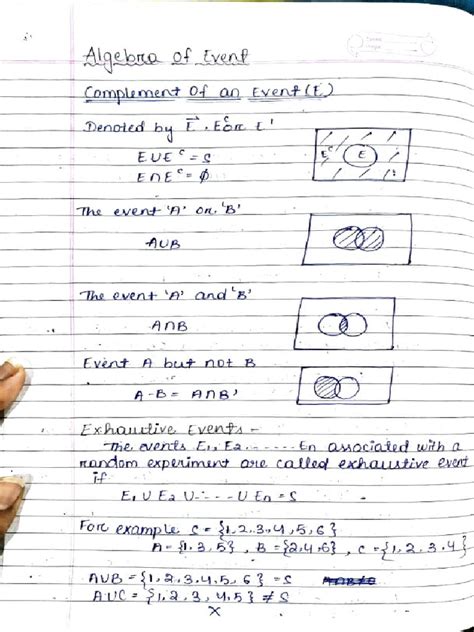 Algebra of Event
Complement Of an Event (E)
Denoted by E̅ , Eᶜ or E'
E ∪ Eᶜ = S
E ∩ Eᶜ = ∅
Eᶜ E
The event 'A' or 'B'
A∪B
The event 'A' and 'B'
A∩B
Event A but not B
A-B = A∩B'
Exhaustive Events -
The events E₁, E₂ ....... En associated with a
random experiment are called exhaustive event
if
E₁ ∪ E₂ ∪ ..... ∪ En = S
For example S = {1, 2, 3, 4, 5, 6}
A = {1, 3, 5} , B = {2, 4, 6} , C = {1, 2, 3, 4}
A∪B = {1, 2, 3, 4, 5, 6} = S
A∪C = {1, 2, 3, 4, 5} ≠ S
X